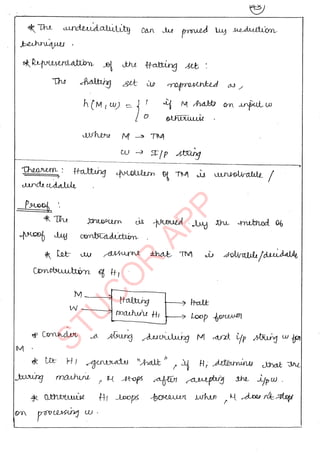 * The undecidability can be proved by reduction
technique.
* Representation of the Halting set :
The halting set is represented as,
h(M, w) = { 1 if M halts on input w
0 otherwise.
where M → TM
w → I/p string
Theorem : Halting problem of TM is unsolvable /
undecidable.
Proof :
* The theorem is proved by the method of
proof by contradiction.
* Let us assume that TM is solvable/decidable
Construction of H1
M
W
Halting
machine H1
→ Halt
→ Loop forever
* Consider a string describing M and i/p string w for
M.
* Let H1 generates "halt", if H1 determines that the
turing machine, M stops after accepting the i/p w.
* Otherwise H1 loops forever when, M doesn't stop
on processing w.
STUCOR APP